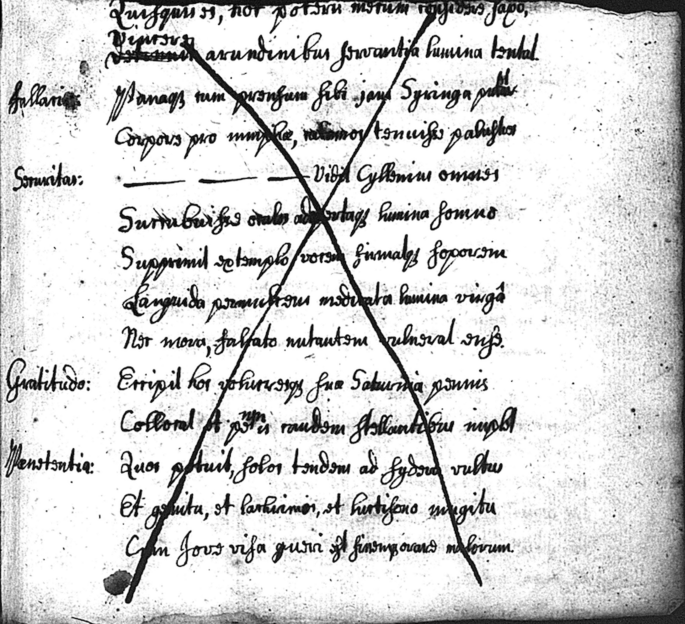 Quisquis es, hoc poteris mecum considere saxo,
Vincere
arundinibus servantia lumina tentat.
Fallacia: Panaq₃ cum prensam sibi jam Syringa putat
Corpore pro nymphæ, calamos tenuisse palustres
Securitas: — — — Vidit Cyllenius omnes
Succubuisse oculos adopertaq₃ lumina somno
Supprimit extemplo vocem firmatq₃ soporem
Languida permulcens medicata lumina virgâ
Nec mora, falcato nutantem vulnerat ense.
Gratitudo: Excipit hos volucresq₃ suæ Saturnia pennis
Collocat et caudam stellantibus implet
Pænetentia: Quos potuit, solos tendens ad sydera vultus
Et gemitu, et lachrimis, et luctisono mugitu
Cum Jove visa queri est finemq₃ orare malorum.